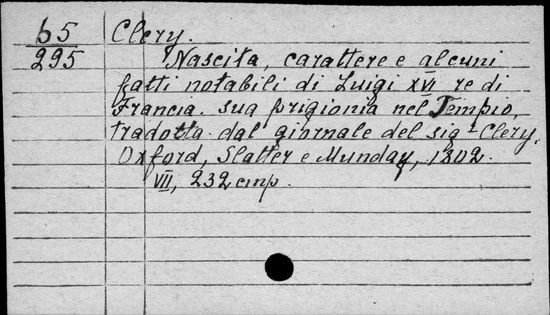 65 Clery.
295 Nascita, carattere e alcuni
fatti notabili di Luigi XVI re di
Francia. sua prigionia nel Tempio,
tradotta dal giornale del sigr Clery.
Oxford, Slatter e Munday, 1802.
VII, 232 стр.